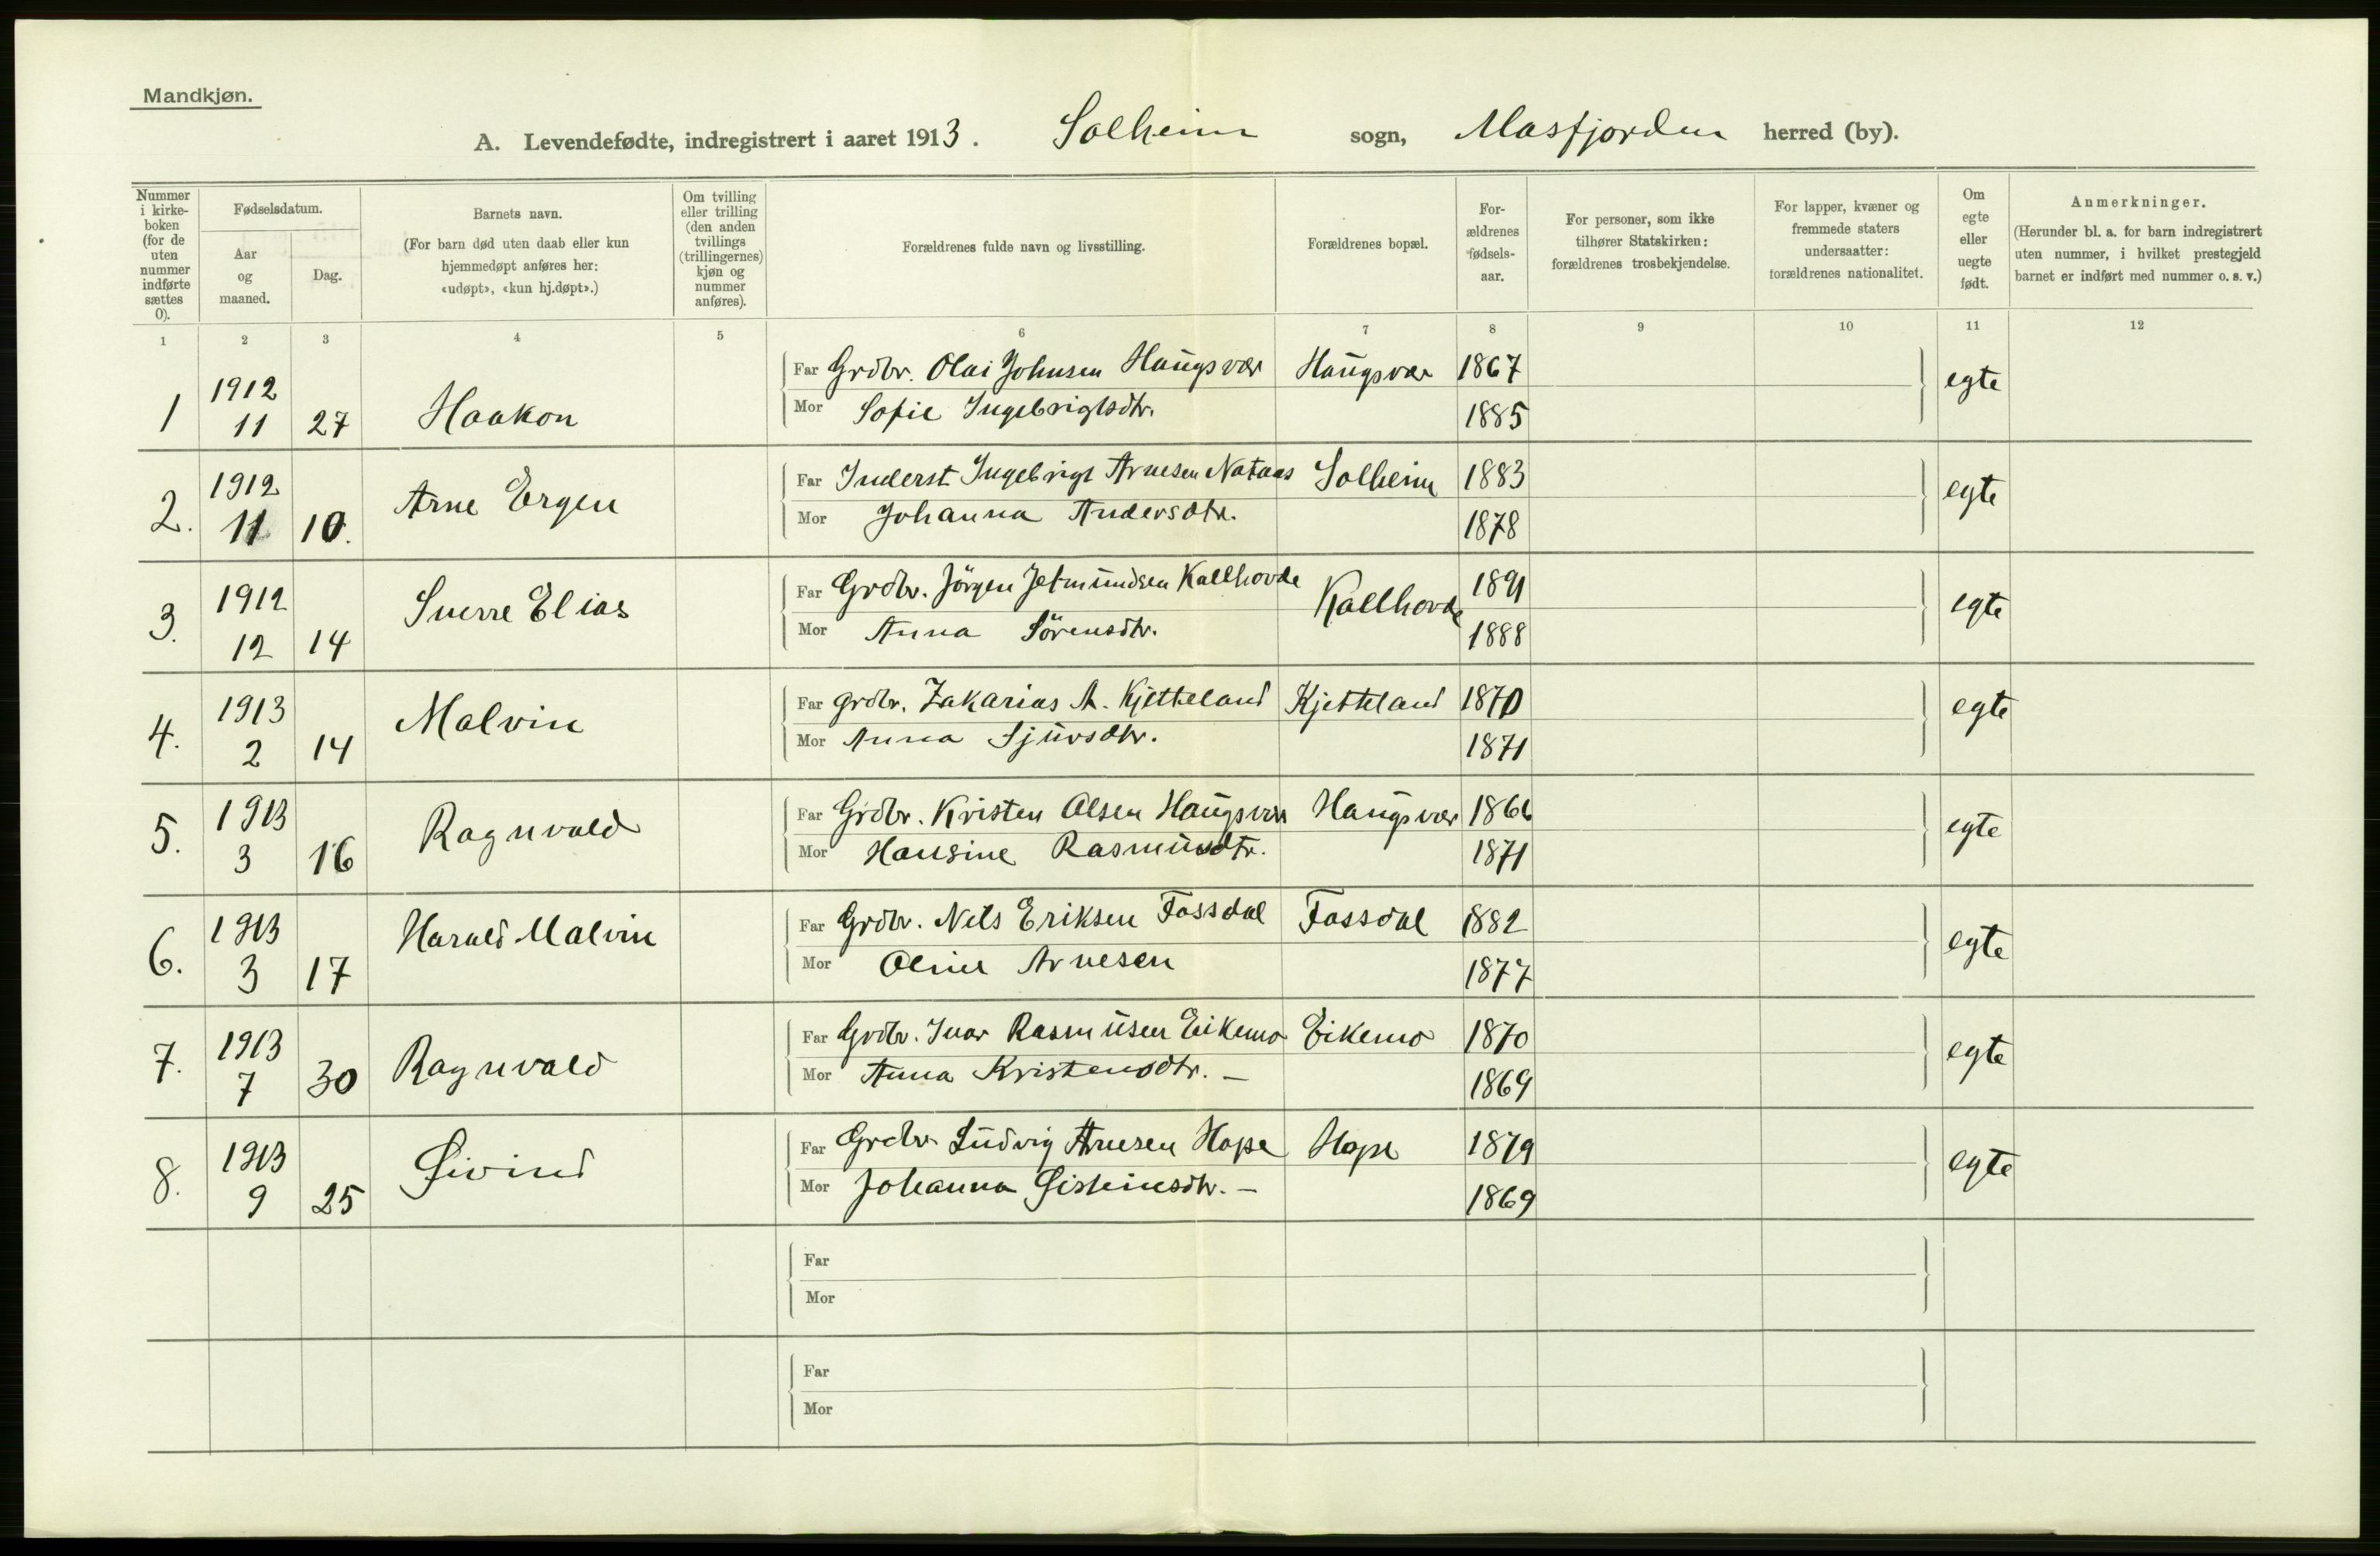 Mandkjøn.
A. Levendefødte, indregistrert i aaret 1913. Solheim sogn, Masfjorden herred (by).
Nummer i kirkeboken (for de uten nummer indførte sættes 0).
Fødselsdatum.
Aar og maaned.
Dag.
Barnets navn.
(For barn død uten daab eller kun hjemmedøpt anføres her: «udøpt», «kun hj.døpt».)
Om tvilling eller trilling (den anden tvillings (trillingernes) kjøn og nummer anføres).
Forældrenes fulde navn og livsstilling.
Forældrenes bopæl.
Forældrenes fødselsaar.
For personer, som ikke tilhører Statskirken: forældrenes trosbekjendelse.
For lapper, kvæner og fremmede staters undersaatter: forældrenes nationalitet.
Om egte eller uegte født.
Anmerkninger.
(Herunder bl. a. for barn indregistrert uten nummer, i hvilket prestegjeld barnet er indført med nummer o. s. v.)
1 2 3 4 5 6 7 8 9 10 11 12
1 1912 11 27 Haakon
Far Grdbr. Olai Johnsen Haugsvær Haugsvær 1867 egte
Mor Sofie Ingebrigtsdtr. 1885
2. 1912 11 10. Arne Ergen
Far Inderst Ingebrigt Arnesen Nataas Solheim 1883 egte
Mor Johanna Andersdtr. 1878
3. 1912 12 14 Sverre Elias
Far Grdbr. Jörgen Jetmundsen Kallhovde Kallhovde 1891 egte
Mor Anna Sörensdtr. 1888
4. 1913 2 14 Malvin
Far grdbr. Zakarias A. Kjetteland Kjetteland 1870 egte
Mor Anna Sjursdtr. 1871
5. 1913 3 16 Ragnvald
Far Grdbr. Kristen Olsen Haugsvær Haugsvær 1866 egte
Mor Hansine Rasmusdtr. 1871
6. 1913 3 17 Harald Malvin
Far Grdbr. Nils Eriksen Fossdal Fossdal 1882 egte
Mor Oline Arnesen 1877
7. 1913 7 30 Ragnvald
Far Grdbr. Ivar Rasmusen Eikemo Eikemo 1870 egte
Mor Anna Kristensdtr. — 1869
8. 1913 9 25 Eivind
Far Grdbr Ludvig Arnesen Hope Hope 1879 egte
Mor Johanna Eisteinsdtr. — 1869
Far
Mor
Far
Mor